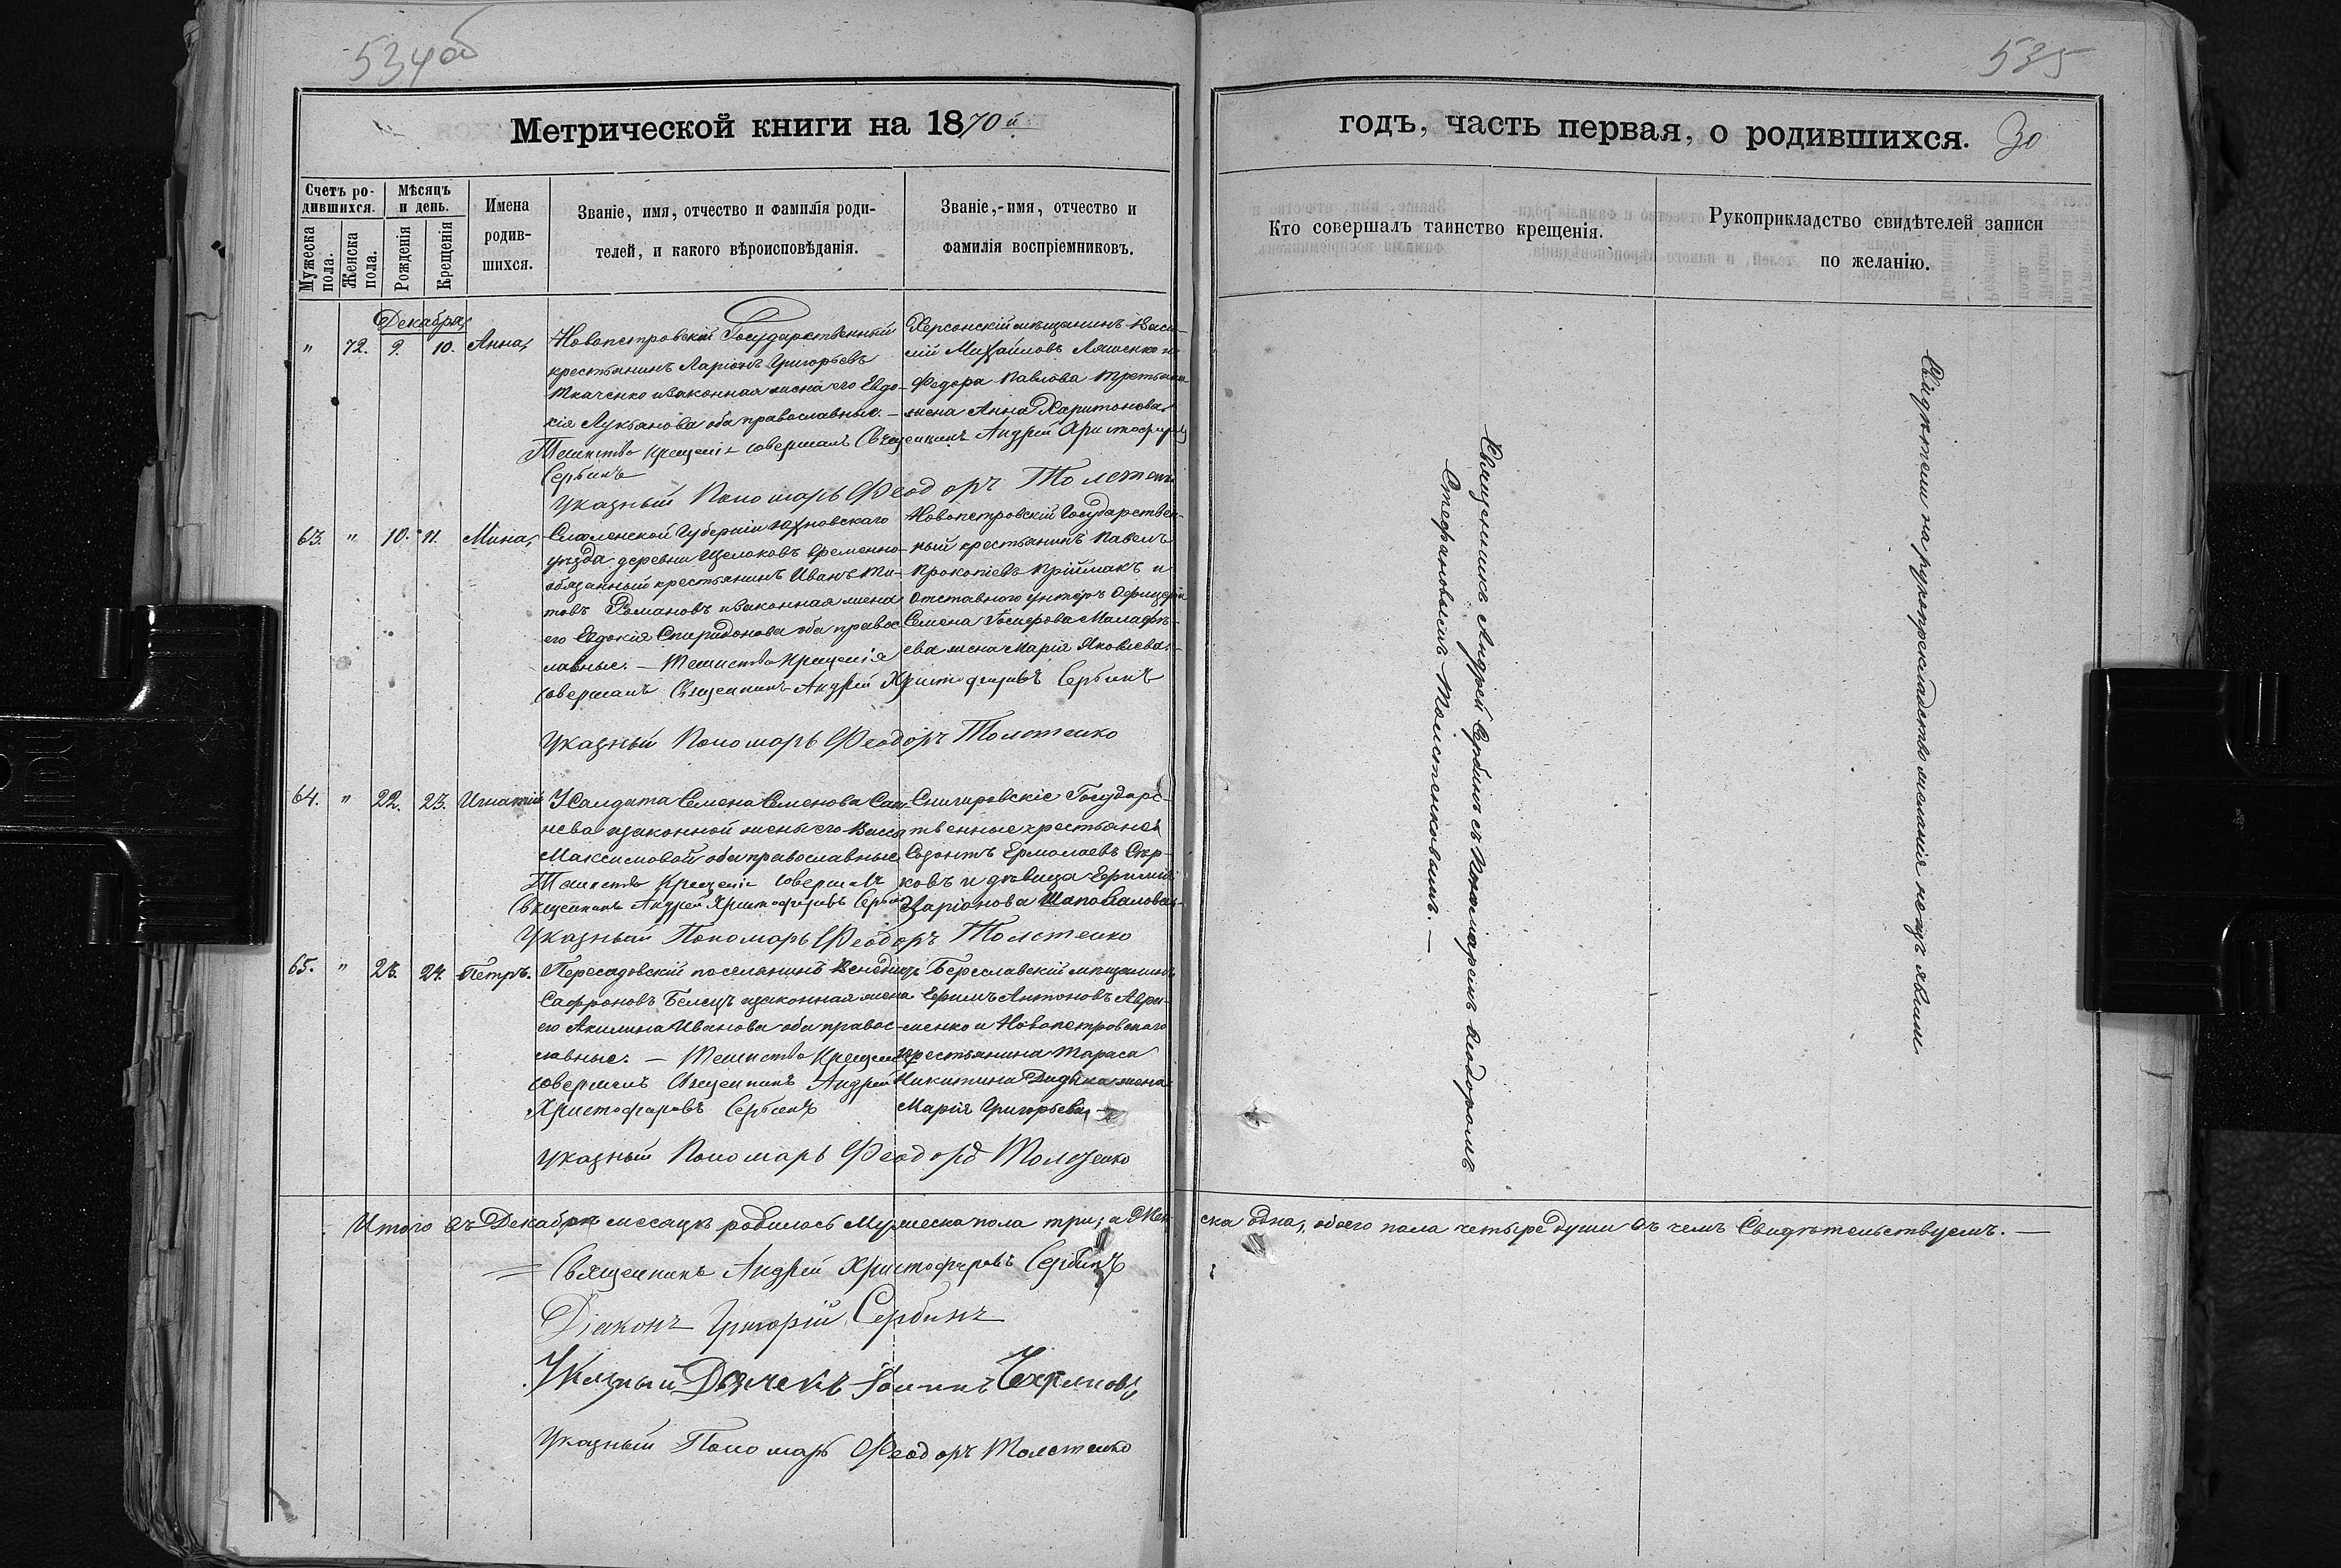 534об
535
Метрической книги на 1870й
годъ, часть первая, о родившихся. 30
Счетъ ро-
дившихся.
Мужеска пола.
Женска пола.
Мѣсяцъ
и день.
Рожденія
Крещенія
Имена
родив-
шихся.
Званіе, имя, отчество и фамилія роди-
телей, и какого вѣроисповѣданія.
Званіе, имя, отчество и
фамилія воспріемниковъ.
Кто совершалъ таинство крещенія.
Рукоприкладство свидѣтелей записи
по желанію.
Декабря
" 72. 9. 10. Анна,
Новопетровскій Государственный
крестьянинъ Ларіонъ Григорьевъ
Ткаченко и законная жена его Евдо-
кія Лукьянова оба православные. —
Херсонскій мѣщанинъ Васи-
лій Михайловъ Ляшенко и
Федора Павлова Третьяка
жена Анна Харитонова
Таинство Крещенія совершалъ Священникъ Андрей Христофоровъ
Сербинъ
Указный Пономарь Феодоръ Толстенко
63. " 10. 11. Мина,
Смоленской Губерніи Юхновскаго
уѣзда деревни Щелоковъ временно-
обязанный крестьянинъ Иванъ Ти-
товъ Романовъ и законная жена
его Евдокія Спиридонова оба правос-
лавные. — Таинство Крещенія
совершалъ Священникъ Андрей Христофоровъ Сербинъ
Новопетровскій Государствен-
ный крестьянинъ Павелъ
Прокопіевъ Пріймакъ и
отставного унтеръ офицера
Семена Іосифова Малафѣ-
ева жена Марія Яковлева. —
Указный Пономарь Феодоръ Толстенко
64. " 22. 23. Игнатій
У Салдата Семена Семенова
нева и законной жены его Васса
Максимовой оба православные
Таинство Крещенія совершалъ
Священникъ Андрей Христофоровъ Сербинъ
Снигировскіе Государс-
твенные крестьяне
Созонтъ Ермолаевъ Сѣр-
ковъ и дѣвица Ефимія
Иларіонова Шаповалова. —
Указный Пономарь Феодоръ Толстенко
65. " 23. 24. Петръ.
Пересадовскій поселянинъ Венедиктъ
Сафроновъ Белецъ и законная жена
его Акилина Иванова оба правос-
лавные. — Таинство Крещенія
совершалъ Священникъ Андрей
Христофоровъ Сербинъ
Береславскій мѣщанинъ
Ефимъ Антоновъ Авра-
менко и Новопетровскаго
крестьянина Тараса
Никитина Дидыка жена
Марія Григорьева. —
Указный Пономарь Феодоръ Толстенко
Священникъ Андрей Сербинъ съ Пономаремъ Феодоромъ
Стефановымъ Толстенковымъ. —
Свидѣтели на рукоприкладство желанія не изъявили
Итого въ Декабрѣ месяцѣ родилось Мужеска пола три, а Жен-
ска одна, обоего пола четыре души въ чемъ Свидѣтельствуемъ. —
Священникъ Андрей Христофоровъ Сербинъ
Діаконъ Григорій Сербинъ
Указный Дьячекъ Іоаннъ
Указный Пономарь Феодоръ Толстенко